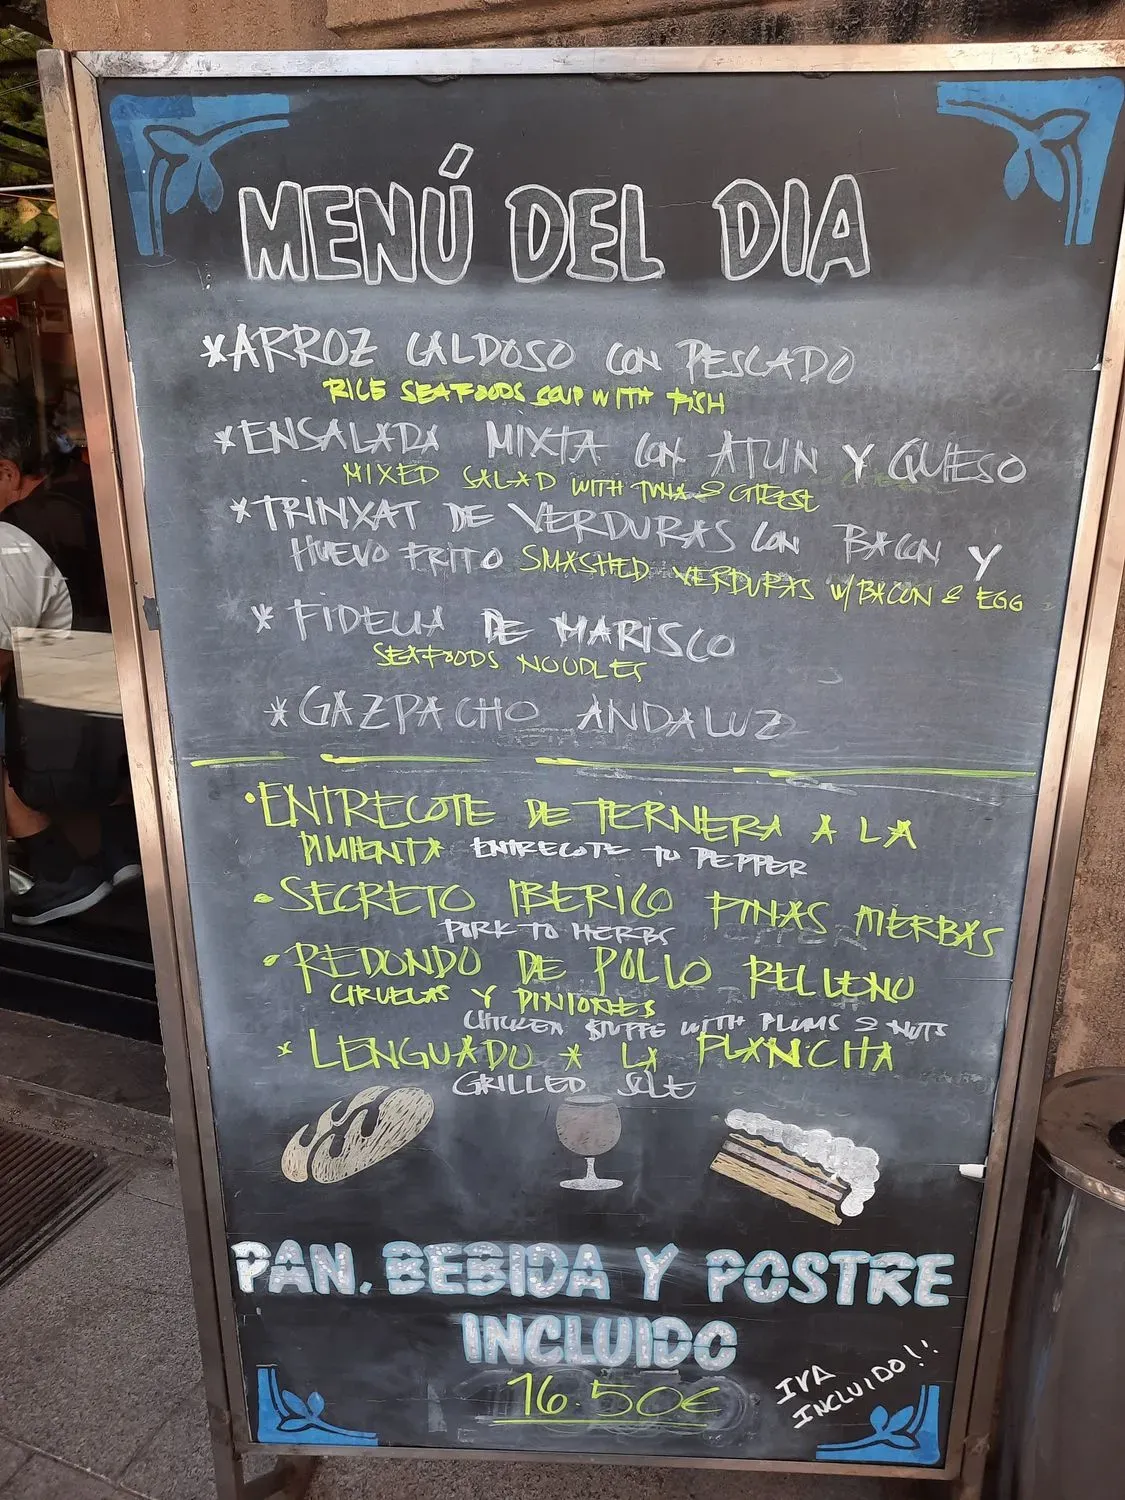 MENÚ DEL DIA
*ARROZ CALDOSO CON PESCADO
RICE SEAFOODS SOUP WITH FISH
*ENSALADA MIXTA CON ATUN Y QUESO
MIXED SALAD WITH TUNA & CHEESE
*TRINXAT DE VERDURAS CON BACON Y
HUEVO FRITO SMASHED VERDURAS W/BACON & EGG
* FIDEUA DE MARISCO
SEAFOODS NOODLES
*GAZPACHO ANDALUZ
•ENTRECOTE DE TERNERA A LA
PIMIENTA ENTRECOTE TO PEPPER
•SECRETO IBERICO FINAS HIERBAS
PORK TO HERBS
•REDONDO DE POLLO RELLENO
CIRUELAS Y PINIONES
CHICKEN STUFFE WITH PLUMS & NUTS
* LENGUADO A LA PLANCHA
GRILLED SOLE
PAN, BEBIDA Y POSTRE
INCLUIDO
16.50€
IVA
INCLUIDO!!